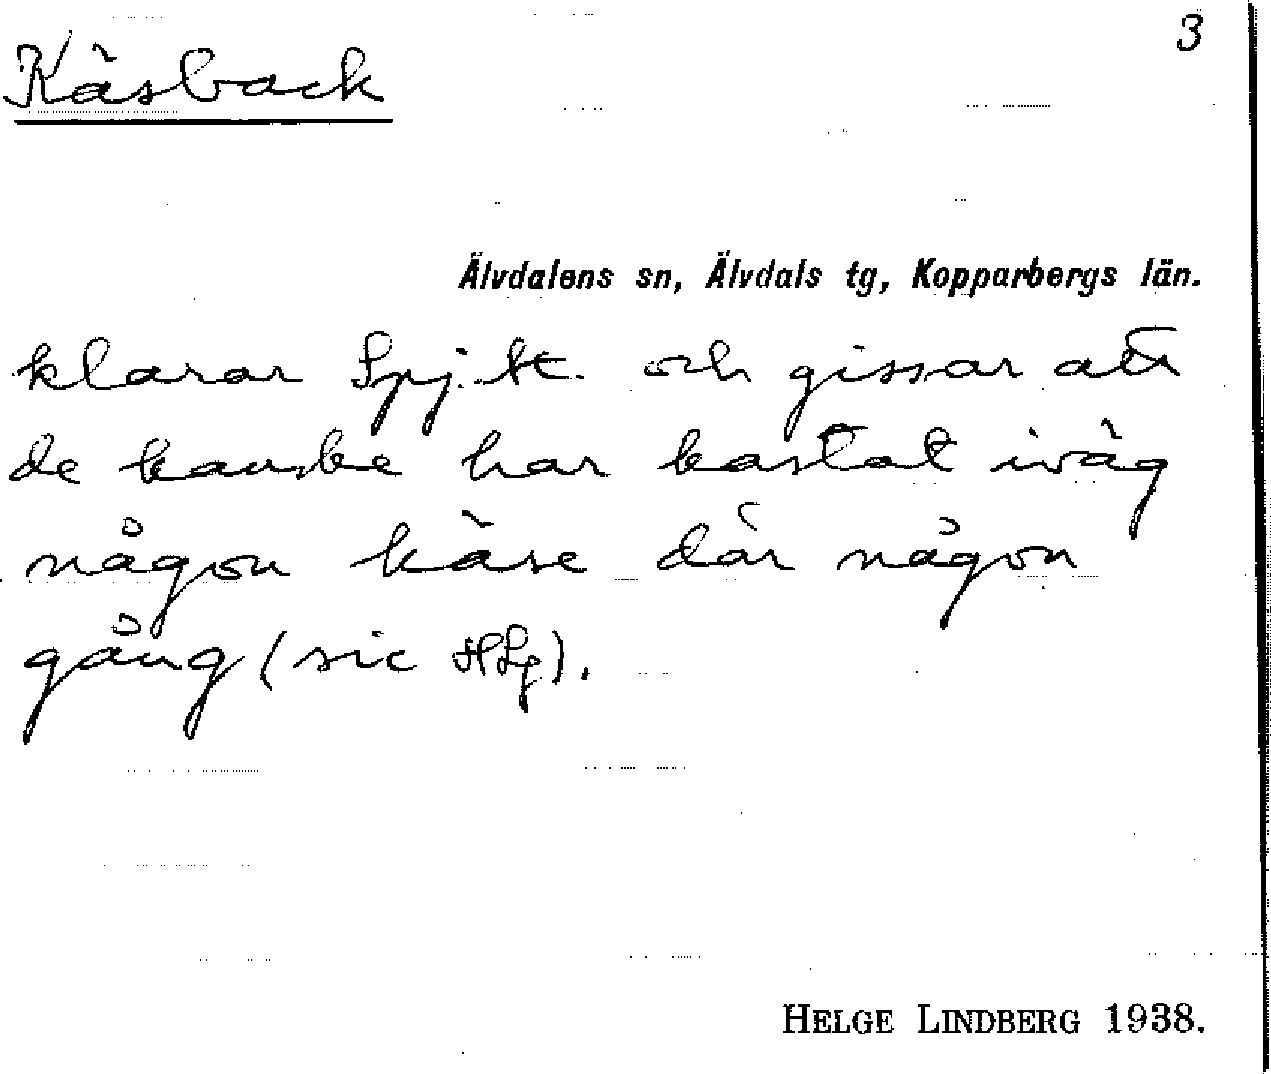 3
Käsback
Älvdalens sn, Älvdals tg, Kopparbergs län.
klarar Spj. K. och gissar att
de kanske har kastat iväg
någon käse där någon
gång (sic HLg).
HELGE LINDBERG 1938.